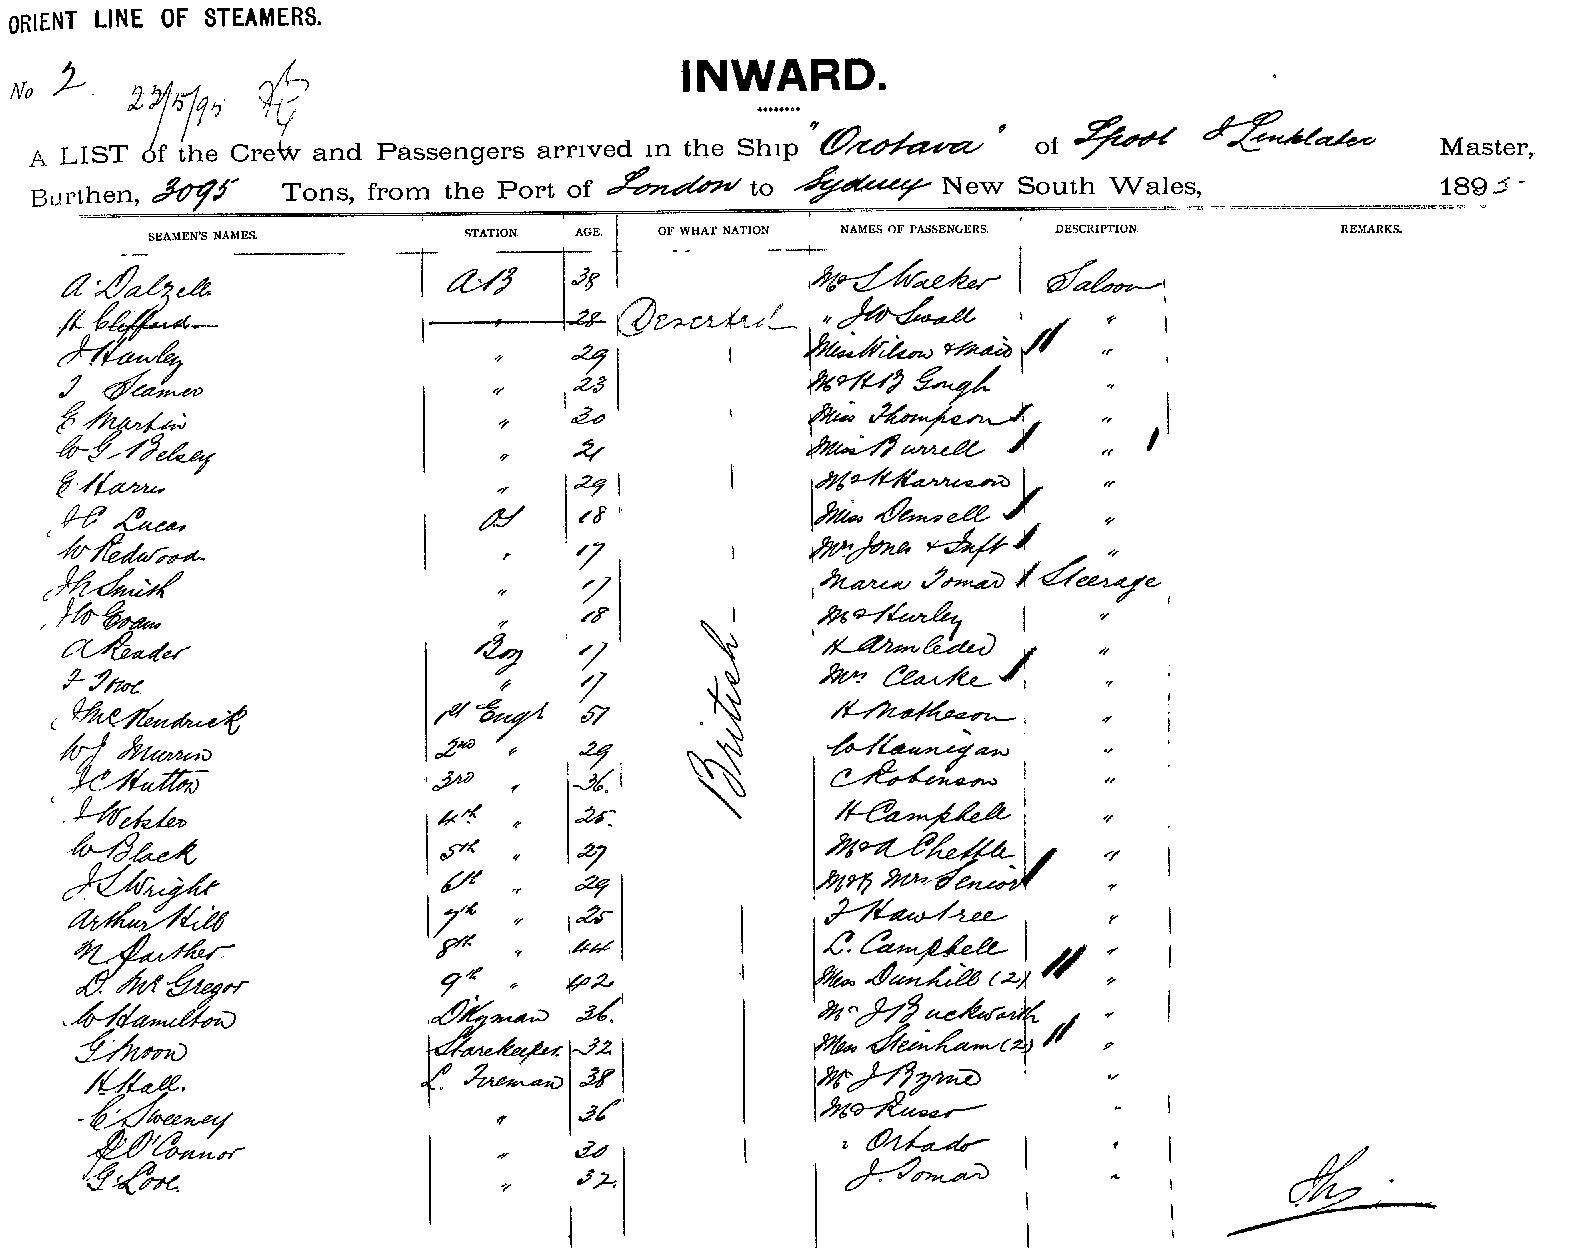 ORIENT LINE OF STEAMERS.
No 2. 23/5/95
INWARD.
A LIST of the Crew and Passengers arrived in the Ship "Orotava" of Lpool J Linklater Master,
Burthen, 3095 Tons, from the Port of London to Sydney New South Wales, 1895
SEAMEN'S NAMES. STATION. AGE. OF WHAT NATION NAMES OF PASSENGERS. DESCRIPTION. REMARKS.
A Dalzell AB 38 Mr S Walker Saloon
H Clifford " 28 Deserted " J W Swall "
J Hanley " 29 Miss Wilson & Maid "
T Seamer " 23 Mr H B Gough "
E Martin " 20 Miss Thompson "
W G Belsey " 21 Miss Burrell "
E Harris " 29 Mr H Harrison "
J C Lucas OS 18 Miss Demsell "
W Redwood " 17 Mrs Jones & Inft "
J H Smith " 17 Maria Tomad Steerage
J W Evans " 18 Mr Hurley "
A Reader Boy 17 H Armleder "
" 17 Mrs Clarke "
J McKendrick 1st Engr 51 H Matheson "
W J Murrin 2nd " 29 W Hannigan "
J C Hutton 3rd " 36. C Robinson "
J Webster 4th " 25. H Campbell "
W Black 5th " 27 Mr A Chettle "
J S Wright 6th " 29 Mr & Mrs Senior "
Arthur Hill 7th " 25 F Hawtree "
8th " 44 L. Campbell "
D. McGregor 9th " 42 Miss Dunhill (2) "
W Hamilton D'kyman 36. Mr J Buckworth "
G Moon Storekeeper 32 Miss Steinham (2) "
H Hall. L. Fireman 38 Mr J Byrne "
C Sweeney " 36 Mr Russo "
P O'Connor " 30 " Orbado "
G Love. " 32. J. Tomad "
British